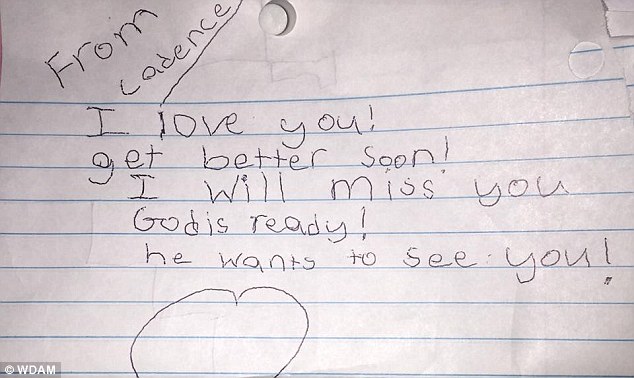 From
Cadence
I love you!
get better soon!
I will miss you
God is ready!
he wants to see you!
© WDAM